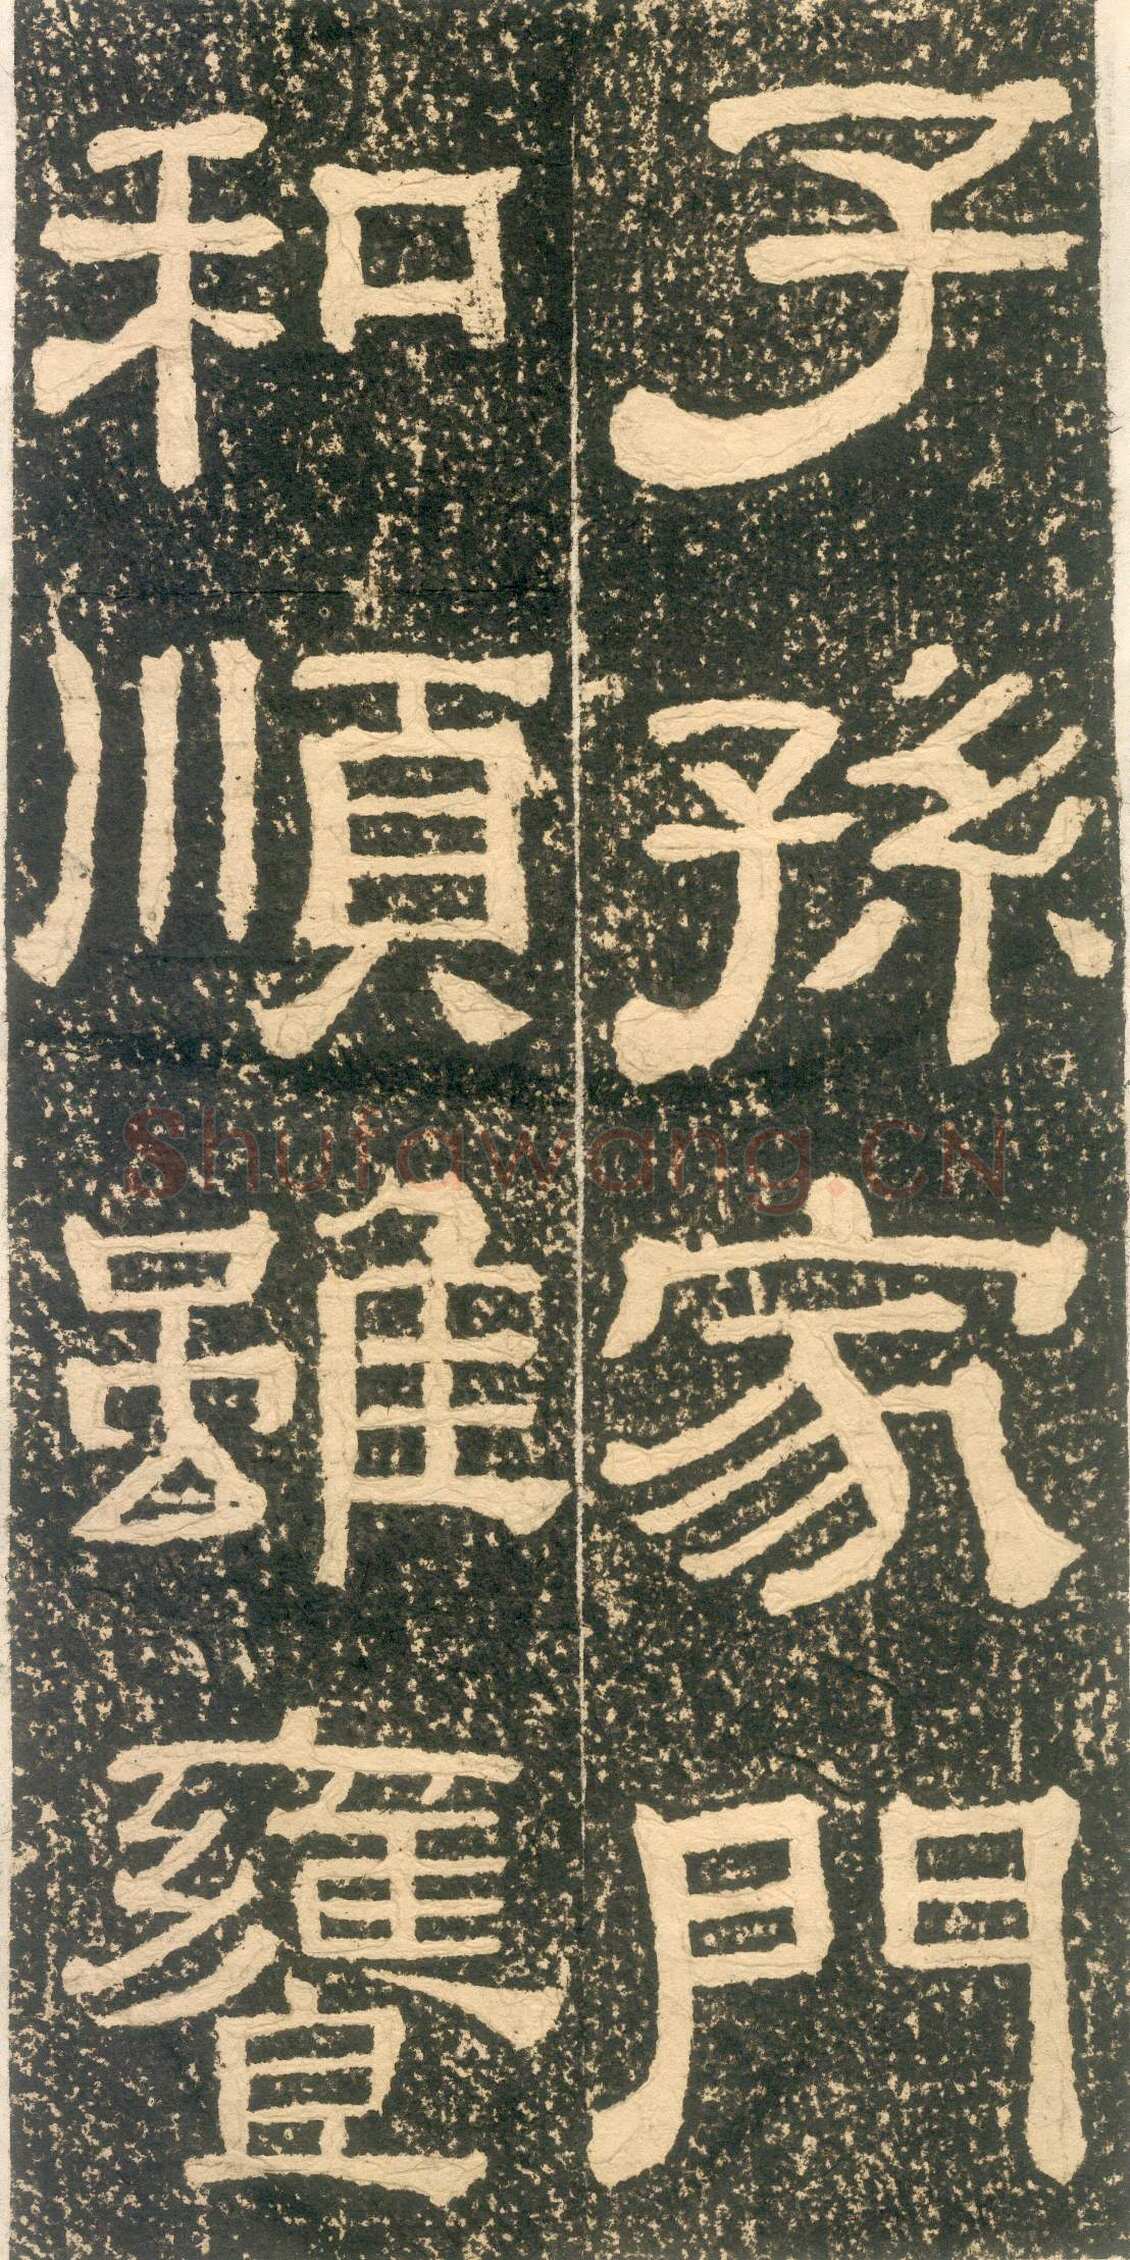 子孫家門
和順雖饔
Shufawang.CN